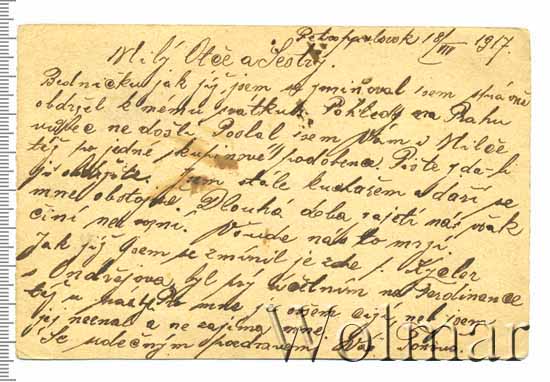 Petropavlovsk 18/VIII 1917.
Milý Otče a Sestry.
Bedničku jak již jsem se zmiňoval jsem správně
obdržel k mému svátku. Pohledy na Prahu
vůbec ne došli. Poslal jsem Vám i Milče
též po jedné skupinové podobence. Pište zda-li
ji obdržíte. Jsem stále kuchařem a daří se
mne obstojně. Dlouhá doba zajetí nás však
činí nervosní. Všude nás to mrzí
Jak již jsem se zmínil je zde p. Kysler
z Ondřejova, byl prý účetním na Ferdinance
též u Pro mne je ovšem cizí neb jsem
jej neznal a ne zajímá mne.
Se srdečným pozdravem Váš
Wolmar